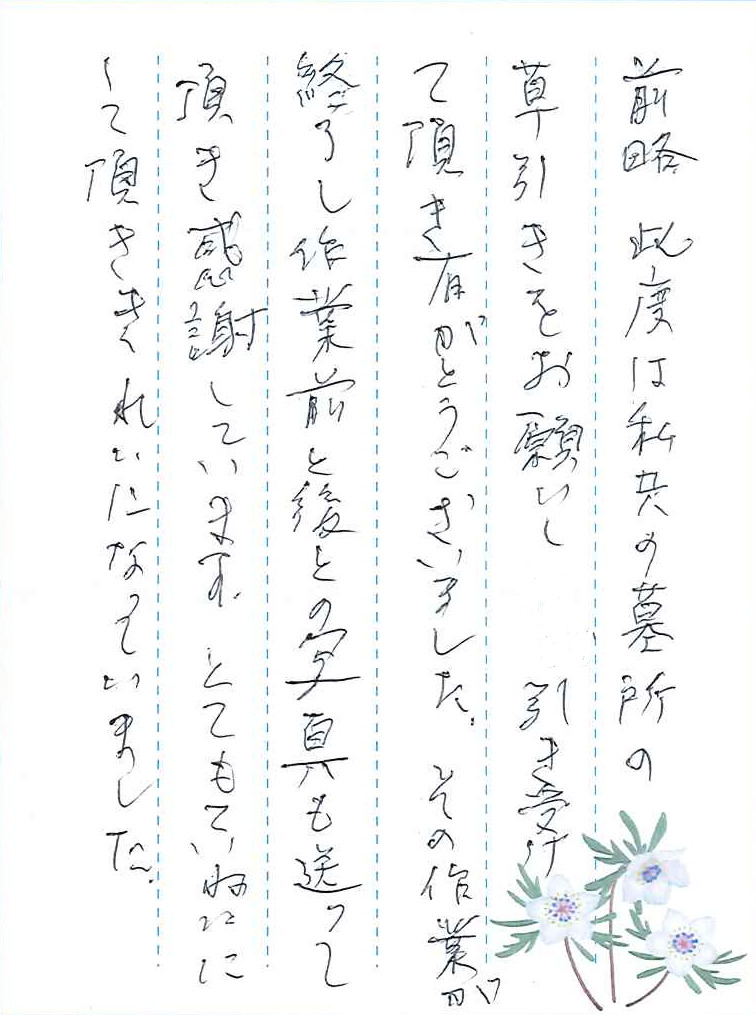 前略 此度は私共の墓所の
草引きをお願いし 引き受け
て頂き有がとうございました。その作業が
終了し作業前と後との写真も送って
頂き感謝しています。とてもていねいに
して頂ききれいになっていました。